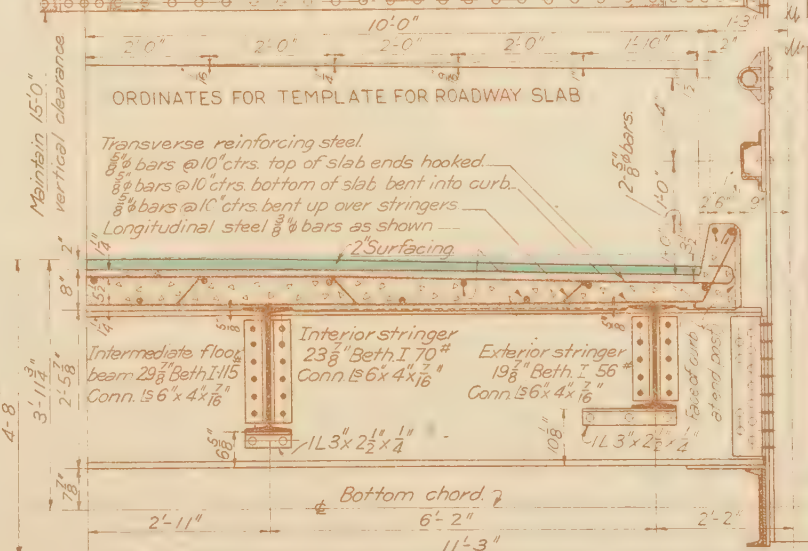 10'-0"
1'-3"
2'-0" 2'-0" 2'-0" 2'-0" 1'-10" 2"
ORDINATES FOR TEMPLATE FOR ROADWAY SLAB
Maintain 15'-0"
vertical clearance
Transverse reinforcing steel.
5/8"φ bars @ 10" ctrs. top of slab ends hooked
5/8"φ bars @ 10" ctrs. bottom of slab bent into curb
5/8"φ bars @ 10" ctrs. bent up over stringers
Longitudinal steel 3/8"φ bars as shown
2" Surfacing
2-5/8"φ bars.
4"
1'-0"
2'-6" 9"
2"
8"
5 1/2"
1/4"
5/8"
5/8"
Intermediate floor
beam 29 7/8" Beth. I-115#
Conn. Ls 6" x 4" x 7/16"
Interior stringer
23 7/8" Beth. I 70#
Conn Ls 6" x 4" x 7/16"
Exterior stringer
19 5/8" Beth. I 56#
Conn Ls 6" x 4" x 7/16"
Face of curb
at end post
4-8
3'-11 3/4"
2'-5 7/8"
6 5/8"
1L 3" x 2 1/2" x 1/4"
10 1/8"
1L 3" x 2 1/2" x 1/4"
7 7/8"
Bottom chord
2'-11" 6'-2" 2'-2"
11'-3"